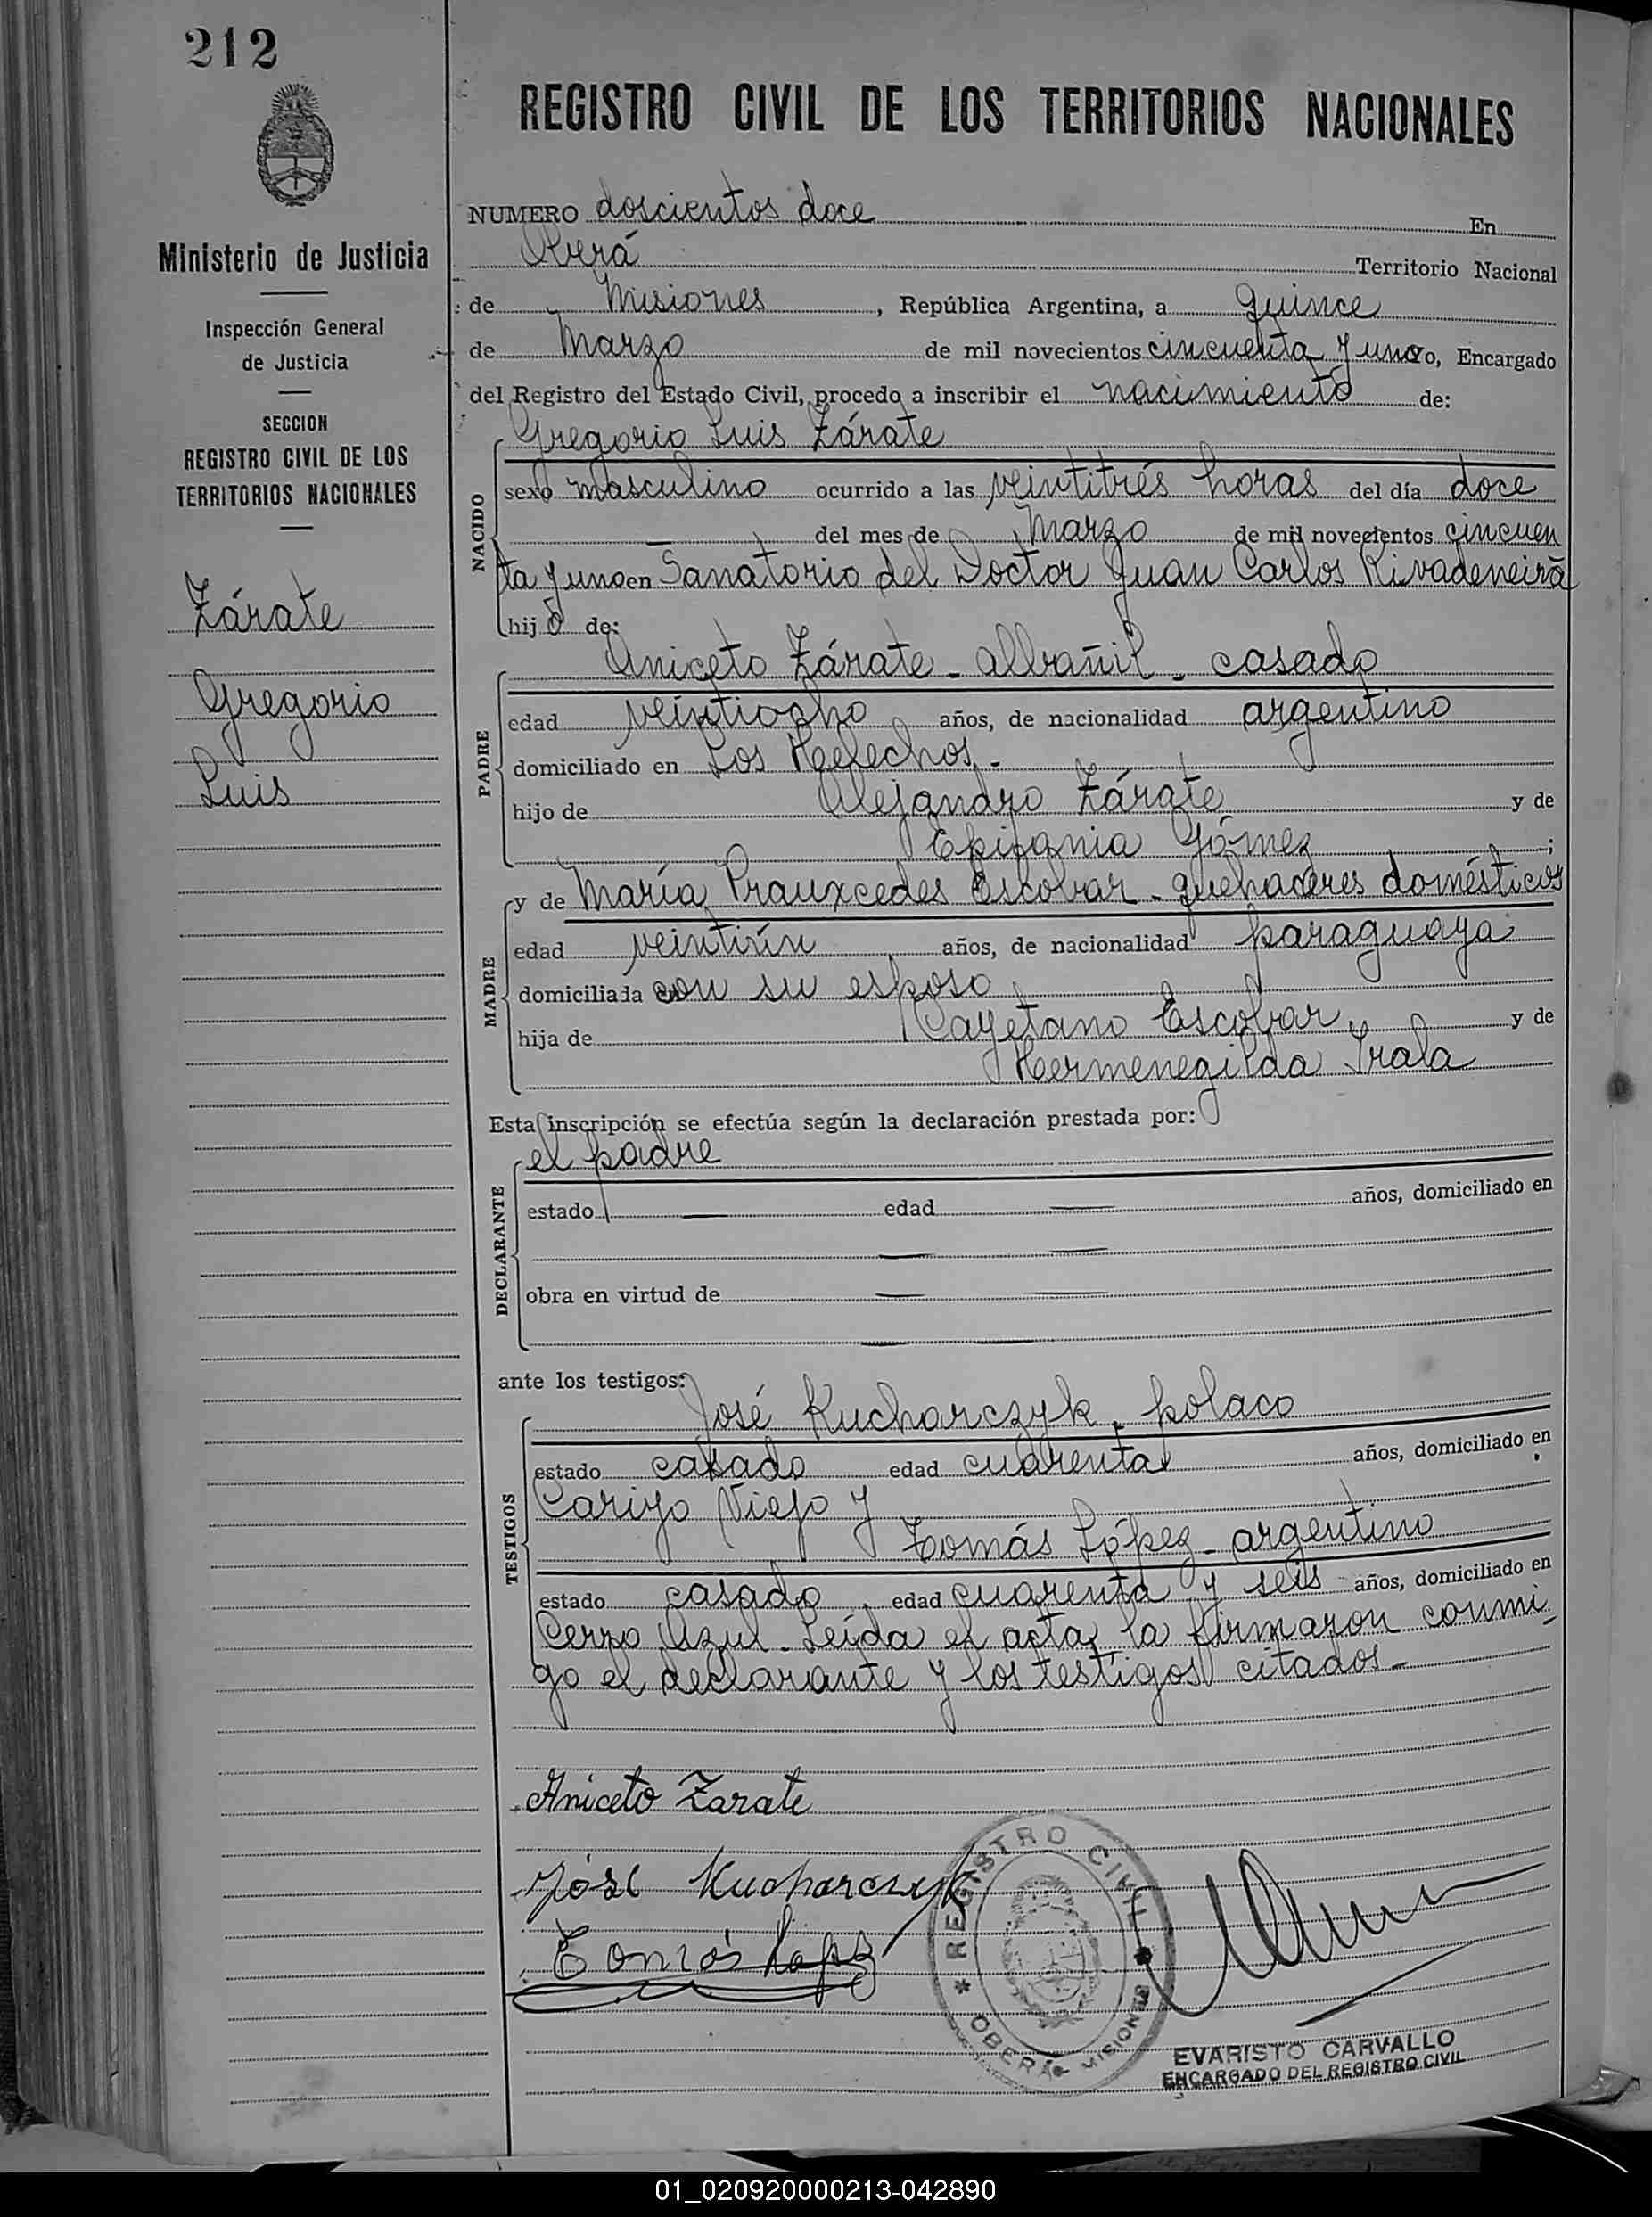 212
REGISTRO CIVIL DE LOS TERRITORIOS NACIONALES
Ministerio de Justicia
Inspección General
de Justicia
SECCION
REGISTRO CIVIL DE LOS
TERRITORIOS NACIONALES
Zárate
Gregorio
Luis
NUMERO doscientos doce En
Oberá Territorio Nacional
de Misiones, República Argentina, a quince
de Marzo de mil novecientos cincuenta y uno yo, Encargado
del Registro del Estado Civil, procedo a inscribir el nacimiento de:
Gregorio Luis Zárate
NACIDO
sexo masculino ocurrido a las veintitrés horas del día doce
del mes de Marzo de mil novecientos cincuen
ta y uno en Sanatorio del Doctor Juan Carlos Rivadeneira
hijo de:
Aniceto Zárate - albañil - casado
PADRE
edad veintiocho años, de nacionalidad argentino
domiciliado en Los Helechos -
hijo de Alejandro Zárate y de
Epifania Gómez ;
y de María Prauxcedes Escobar - quehaceres domésticos
MADRE
edad veintiún años, de nacionalidad paraguaya
domiciliada con su esposo
hija de Cayetano Escobar y de
Hermenegilda Irala
Esta inscripción se efectúa según la declaración prestada por:
el padre
DECLARANTE
estado — edad — años, domiciliado en
— —
obra en virtud de — —
— —
ante los testigos:
José Kucharczyk - polaco
TESTIGOS
estado casado edad cuarenta años, domiciliado en
Cariyo Viejo y
Tomás López - argentino
estado casado edad cuarenta y seis años, domiciliado en
Cerro Azul - Leída el acta, la firmaron conmi
go el declarante y los testigos citados -
Aniceto Zarate
José Kucharczyk
Tomós Lopz
REGISTRO CIVIL
OBERÁ MISIONES
EVARISTO CARVALLO
ENCARGADO DEL REGISTRO CIVIL
01_020920000213-042890